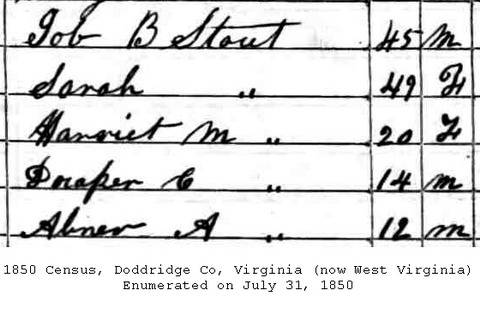 Job B Stout 45 m
Sarah " 49 F
Harriet M " 20 F
Draper C " 14 m
Abner A " 12 m
1850 Census, Doddridge Co, Virginia (now West Virginia)
Enumerated on July 31, 1850